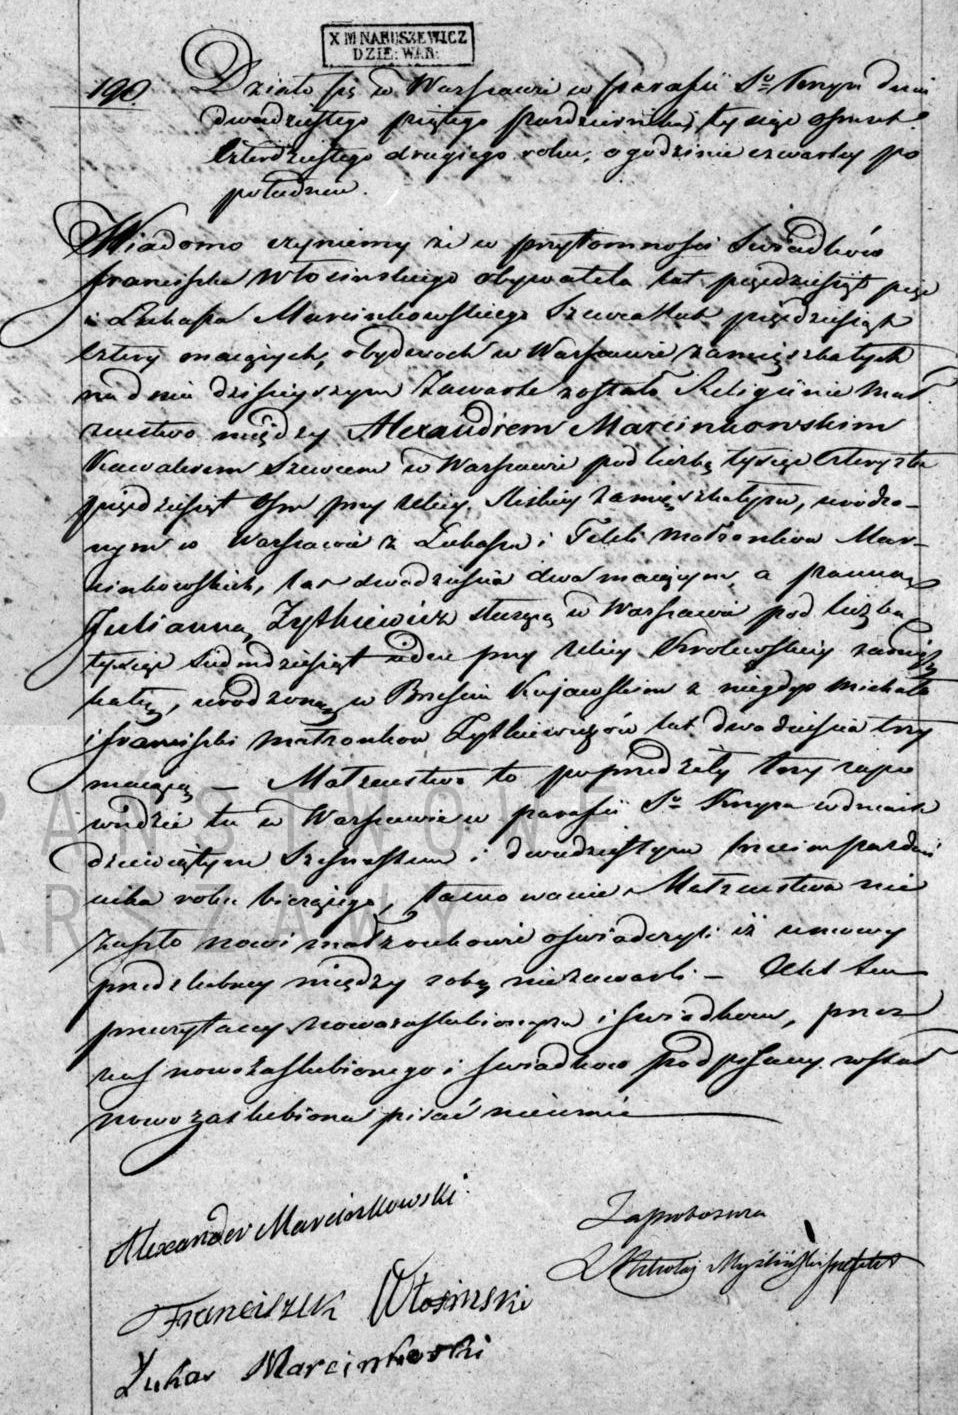 X M NARUSZEWICZ
DZIE: WAR:
190. Działo się w Warszawie w parafii Sgo Krzyża dnia
dwudziestego piątego Pazdziernika, tysiąc osmset
czterdziestego drugiego roku, o godzinie czwartej po
południu.
Wiadomo czyniemy że w przytomności świadków
Franciszka Włosinskiego obywatela lat pięćdziesiąt pięć
i Łukasza Marcinkowskiego Szewca lat pięćdziesiąt
cztery maiących, obydwóch w Warszawie zamięszkałych
na dniu dzisieyszym zawarte zostało Religijnie Mał-
żenstwo między Alexandrem Marcinkowskim
Kawalerem Szewcem w Warszawie pod liczbą tysiąc czterysta
pięćdziesiąt osm przy ulicy Sliskiey zamięszkałym, urodzo-
nym w Warszawie z Łukasza i Tekli małżonków Mar-
cinkowskich, lat dwadzieścia dwa maiącym, a panną
Julianną Zytkiewicz służącą w Warszawie pod liczbą
tysiąc siedmdziesiąt ieden przy ulicy Krolewskiey zamięsz-
kałą, urodzoną w Brześciu Kujawskim z niegdyś Michała
i Franciszki małżonków Zytkiewiczów lat dwadzieścia trzy
maiącą — Małżenstwo to poprzedziły trzy zapo
wiedzie tu w Warszawie w parafii Sgo Krzyża w dniach
dziewiątym Szesnastym i dwudziestym trzecim pazdzier
nika roku bieżącego, tamowanie Małżenstwa nie
zaszło nowi małżonkowie oświadczyli iż umowy
przedślubney między sobą niezawarli — Akt ten
przeczytany nowozaślubionym i świadkom, przez
nas nowozaślubionego i świadków podpisany został
nowozaślubiona pisać nieumie
PAŃSTWOWE
ARSZAWY
Alexander Marcinkowski
Franciszek Włosinski
Łukas Marcinkoski
Zaproboszcza
X Mikołaj Myśliński